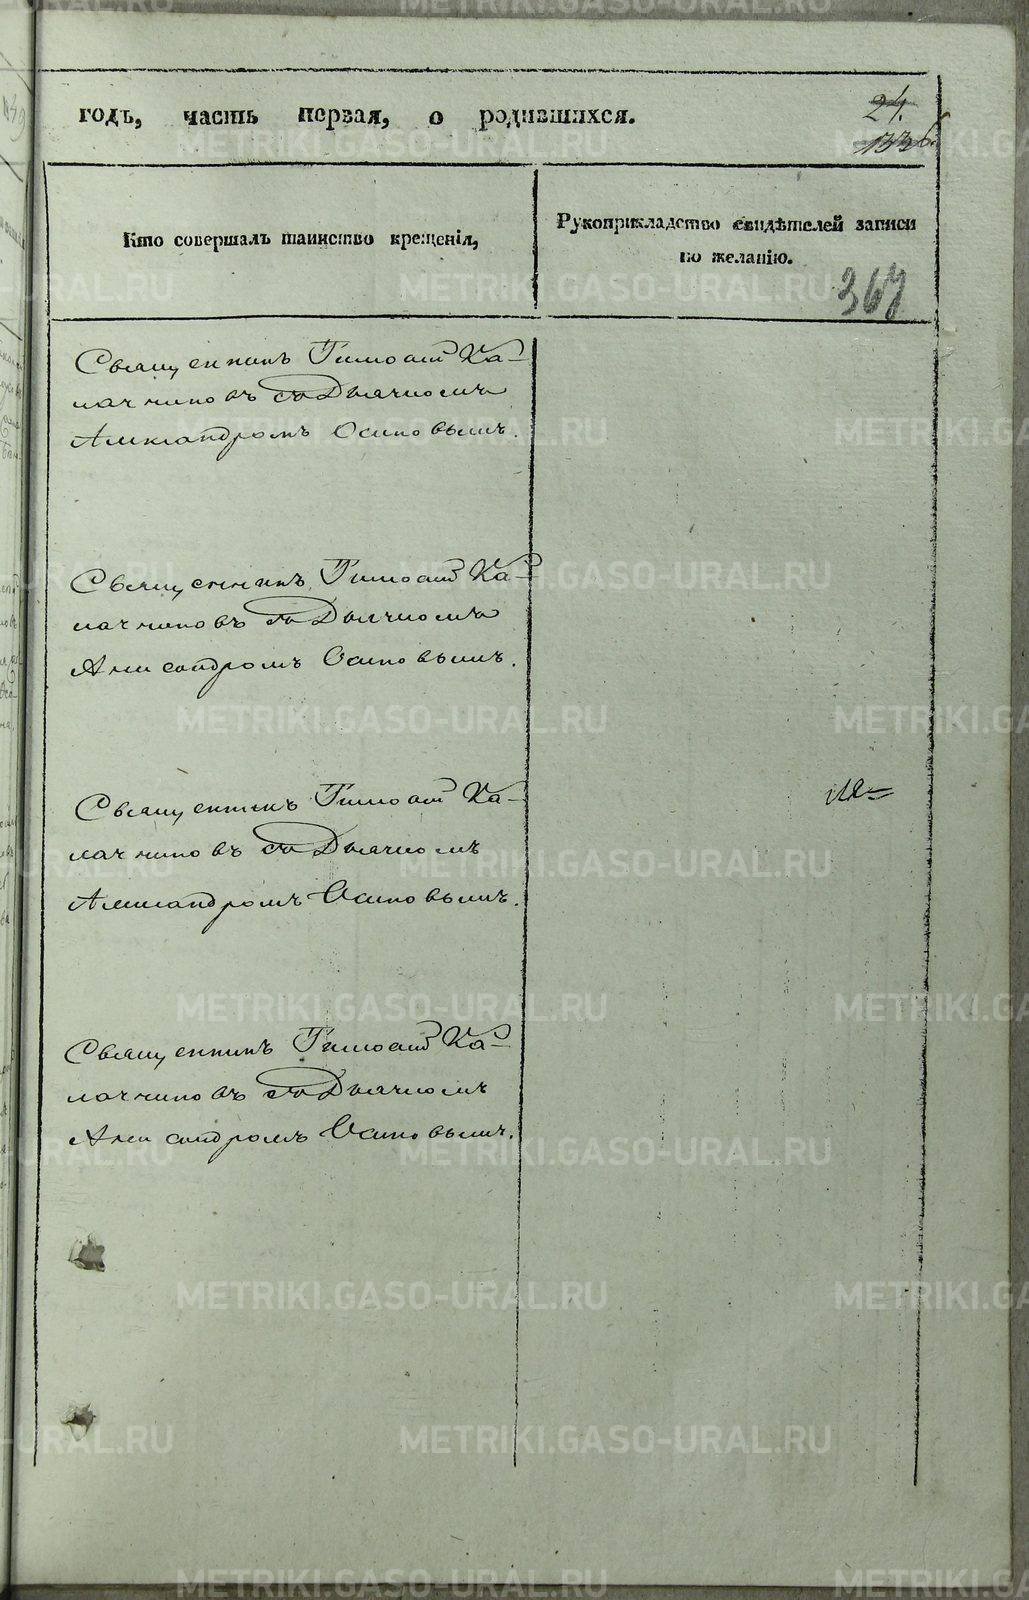 годъ, часть первая, о родившихся.
24.
Кто совершалъ таинство крещенія,
Рукоприкладство свидѣтелей записи
по желанію.
367
Священникъ Тимоѳей Ка-
лачниковъ съ Дьячкомъ
Александромъ Осиповымъ.
Священникъ Тимоѳей Ка-
лачниковъ съ Дьячкомъ
Александромъ Осиповымъ.
Священникъ Тимоѳей Ка-
лачниковъ съ Дьячкомъ
Александромъ Осиповымъ.
Священникъ Тимоѳей Ка-
лачниковъ съ Дьячкомъ
Александромъ Осиповымъ.
METRIKI.GASO-URAL.RU